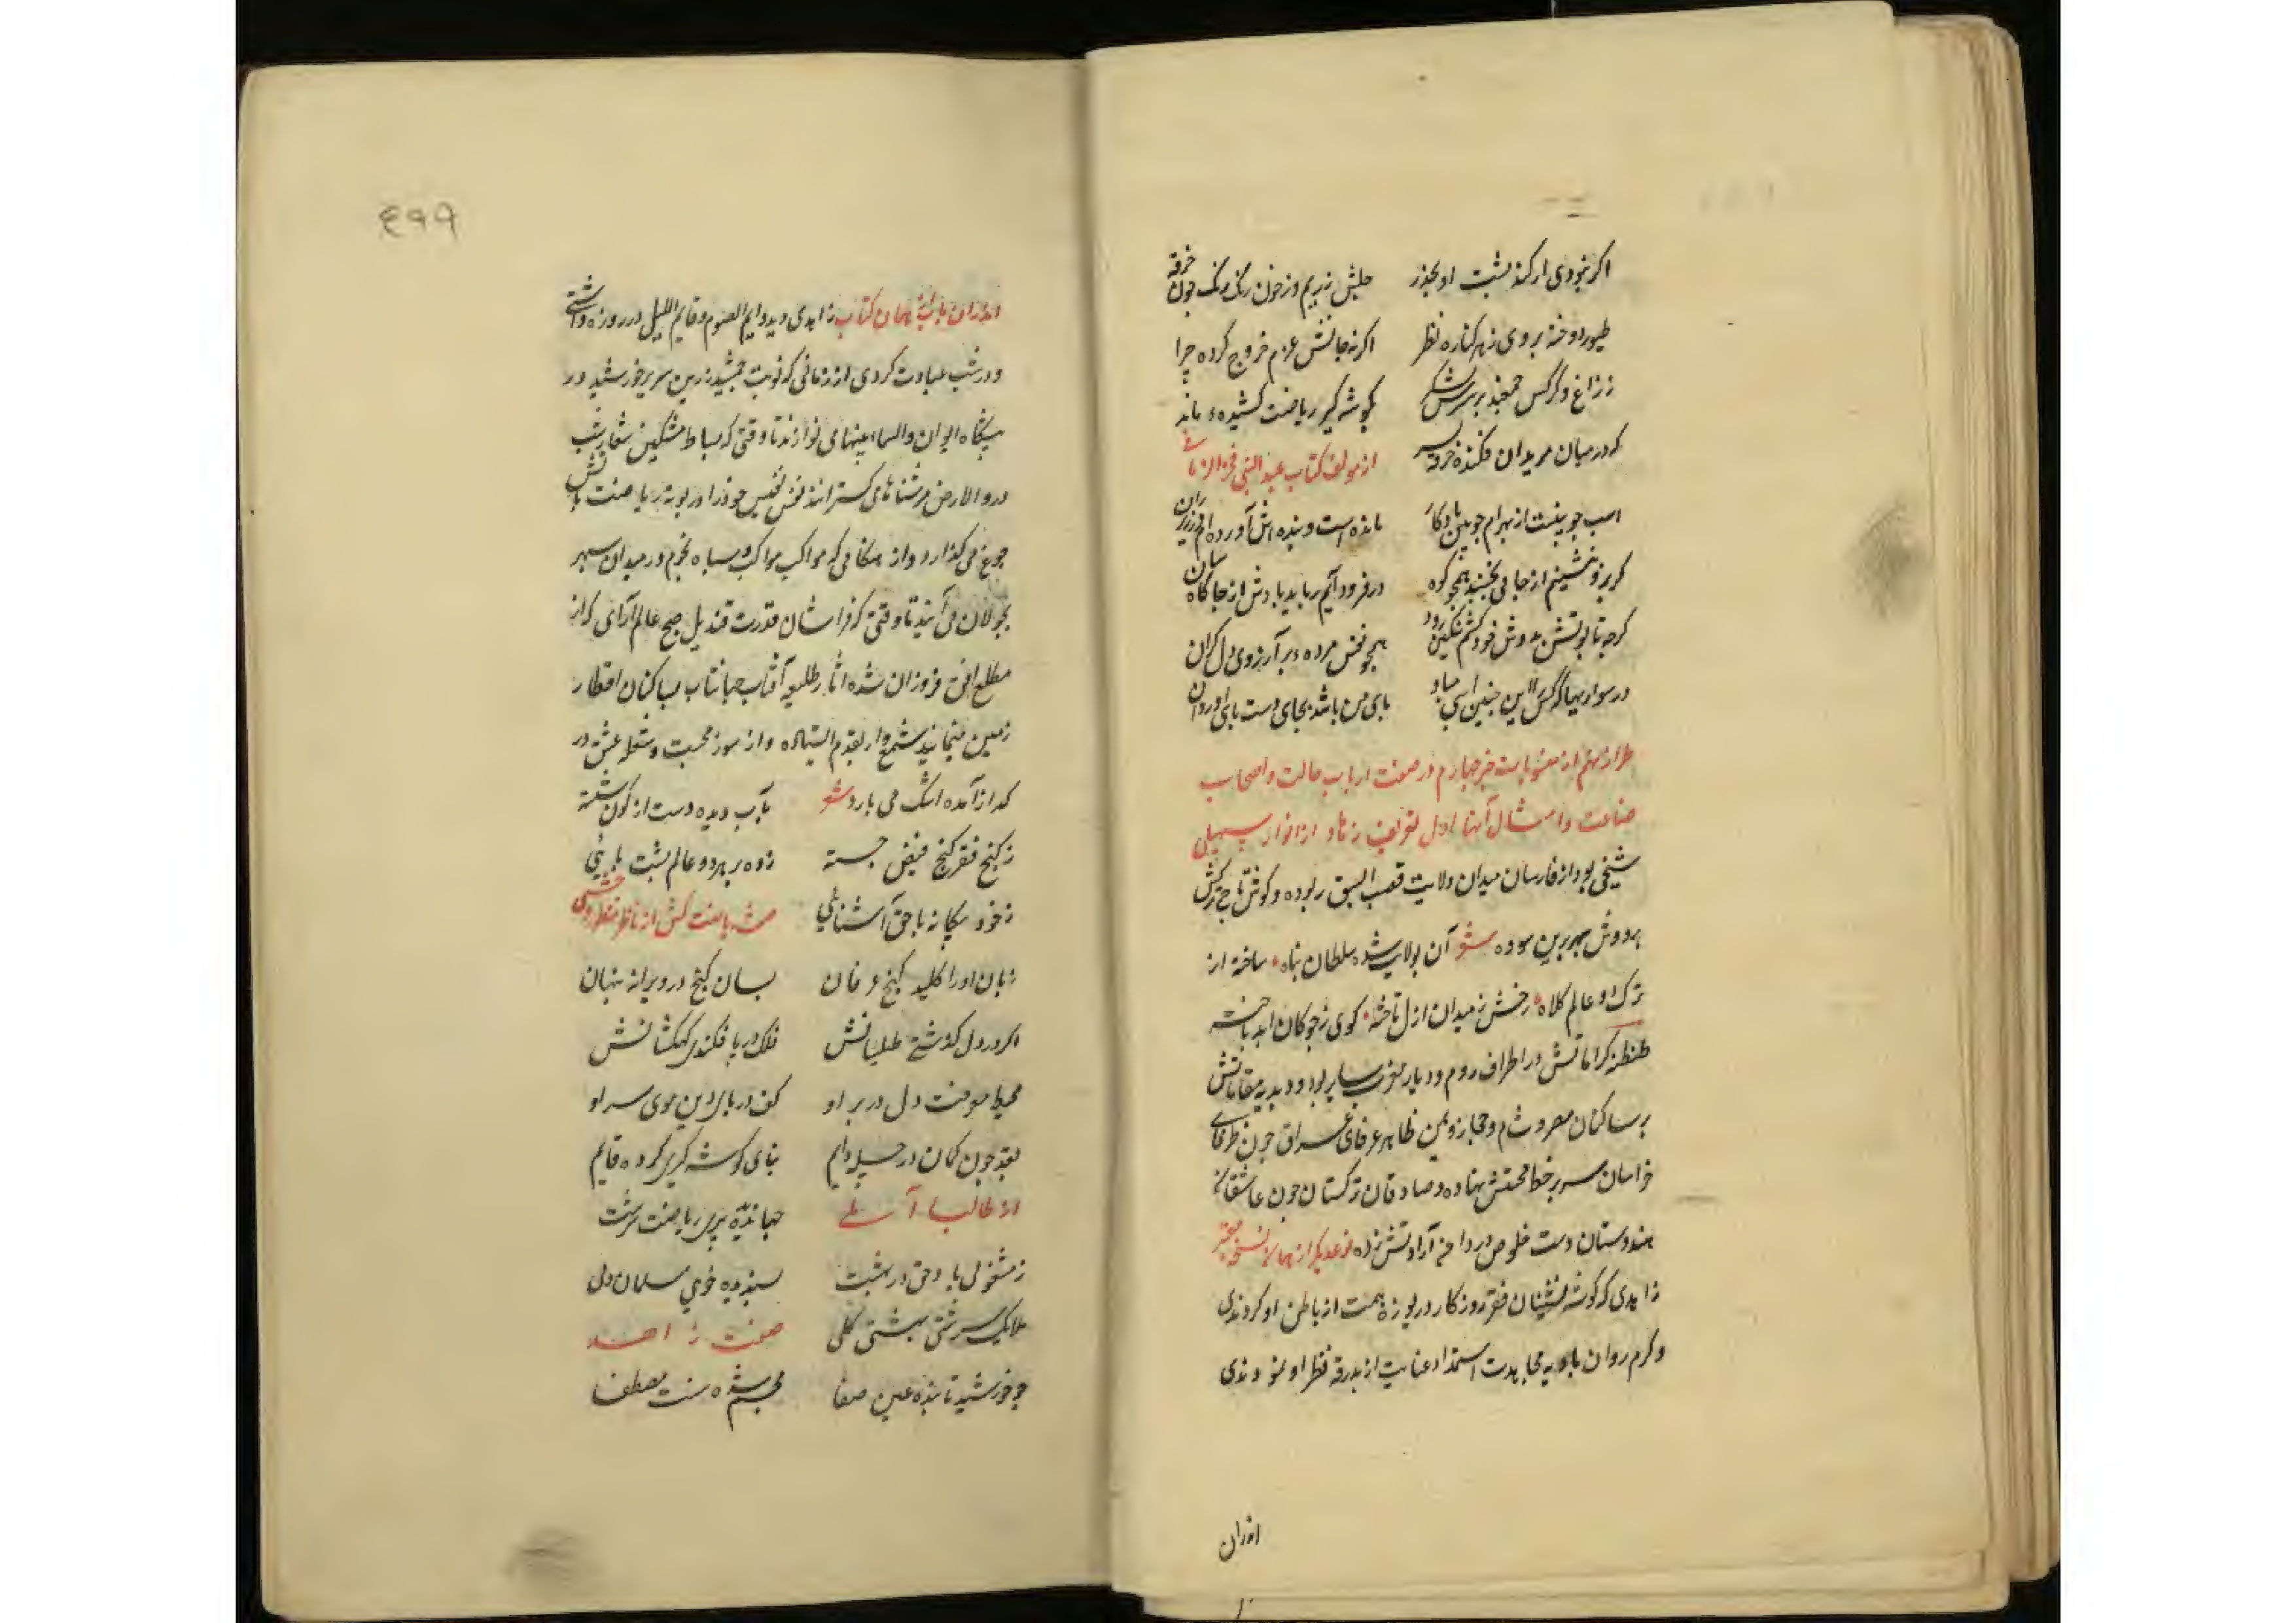 اکر نبودی ار کند پشت او بجذر جلش ز ریم و ز خون رنک رنک چون خرقه
طیور دوخته بروی ز هر کناره نظر اکر نه جانش عزم خروج کرده چرا
ز زاغ و کرکس جمعند بر سرش لشکر کوشه کیر ریاضت کشیده ماند
که در میان مریدان فکنده خرقه سر از مولف کتاب عبد النبی فخر الزمانی
اسب چوبینست از بهرام چوبین یادکار مانده است و بنده اش آورده ام زیر ران
کر برو نشینم از جا نجنبد همچو کوه در فرود آیم رباید بادش از جا کاه سان
کرچه تابوتش بدوش خود کشم لیکن رود همچو نعش مرده بر آرزوی دل کران
در سواریها کر کس این چنین اسبی مباد پای من باشد بجای دست و پای او روان
طراز نهم از منسوبات خبر چهارم در صفت ارباب حالت و اصحاب
صناعت و امثال آنها اول تعریف زهاد از انوار سهیلی
شیخی بود از فارسان میدان ولایت قصب السبق ربوده و کوشه تاج ترکش
بر دوش سپهر برین سوده شعر آن بولایت شده سلطان پناه ساخته از
ترک دو عالم کلاه رخش ز میدان ازل تاخته کوی ز چوکان ابد باخته
طنطنه کراماتش در اطراف روم و دیار مغرب سایر بود و دبدبه مقاماتش
بر ساکنان مصر و شام و حجاز و یمن ظاهر عرفای عراق چون ظرفای
خراسان سر بر خط محبتش نهاده و صادقان ترکستان چون عاشقان
هندوستان دست خلوص در دامن آرادتش زده نوعدیکر از همان نسخه معتبر
زاهدی که کوشه نشینان فقر روزکار دریوزه همت از باطن او کردندی
و کرم روان بادیه مجاهدت استمداد عنایت از بدرقه نظر او نمودندی
اندران
٤٩٩
زاهدی دید دایم الصوم و قایم اللیل در روز روزه داشتی
و در شب عبادت کردی از زمانی که نوبت جمشید زرین سریر خورشید در
پیشکاه ایوان والسماء بنیناها می نوازند تا وقتی که بساط مشکین شعار شب
در و الارض فرشناها می کسترانند نفس نفیس خود را در بوته ریاضت باتش
جوع می کدازد و از هنکامی که مواکب کواکب و سپاه نجوم در میدان سپهر
بجولان می آیند تا وقتی که فراشان قدرت قندیل صبح عالم آرای که از
مطلع افق فروزان شده اثار طلیعه آفتاب جهانتاب بساکنان اقطار
زمین مینمایند شمع وار بقدم ایستاده و از سوز محبت و شعله عشق در
کداز آمده اشک می بارد شعر بآب دیده دست از کون شسته
ز کنج فقر کنج فیض جسته زده بر هر دو عالم پشت پایی
ز خود بیکانه با حق آشنایی
زبان او را کلید کنج عرفان بسان کنج در ویرانه پنهان
اکر در دل کذشتی طیلسانش فلک در پا فکندی کهکشانش
محیط معرفت دل در بر او کف دریای دین موی سر او
بقد چون کمان در چله دایم بنای کوشه کیری کرده قایم
از طالبا آملی جهاندیده پیری ریاضت سرشت
ز مشغولی یاد حق در بهشت پسندیده خوی مسلمان دلی
ملایک سرشتی بهشتی کلی صفت زاهد
چو خورشید تابنده عین صفا مجسم شده سنت مصطفا